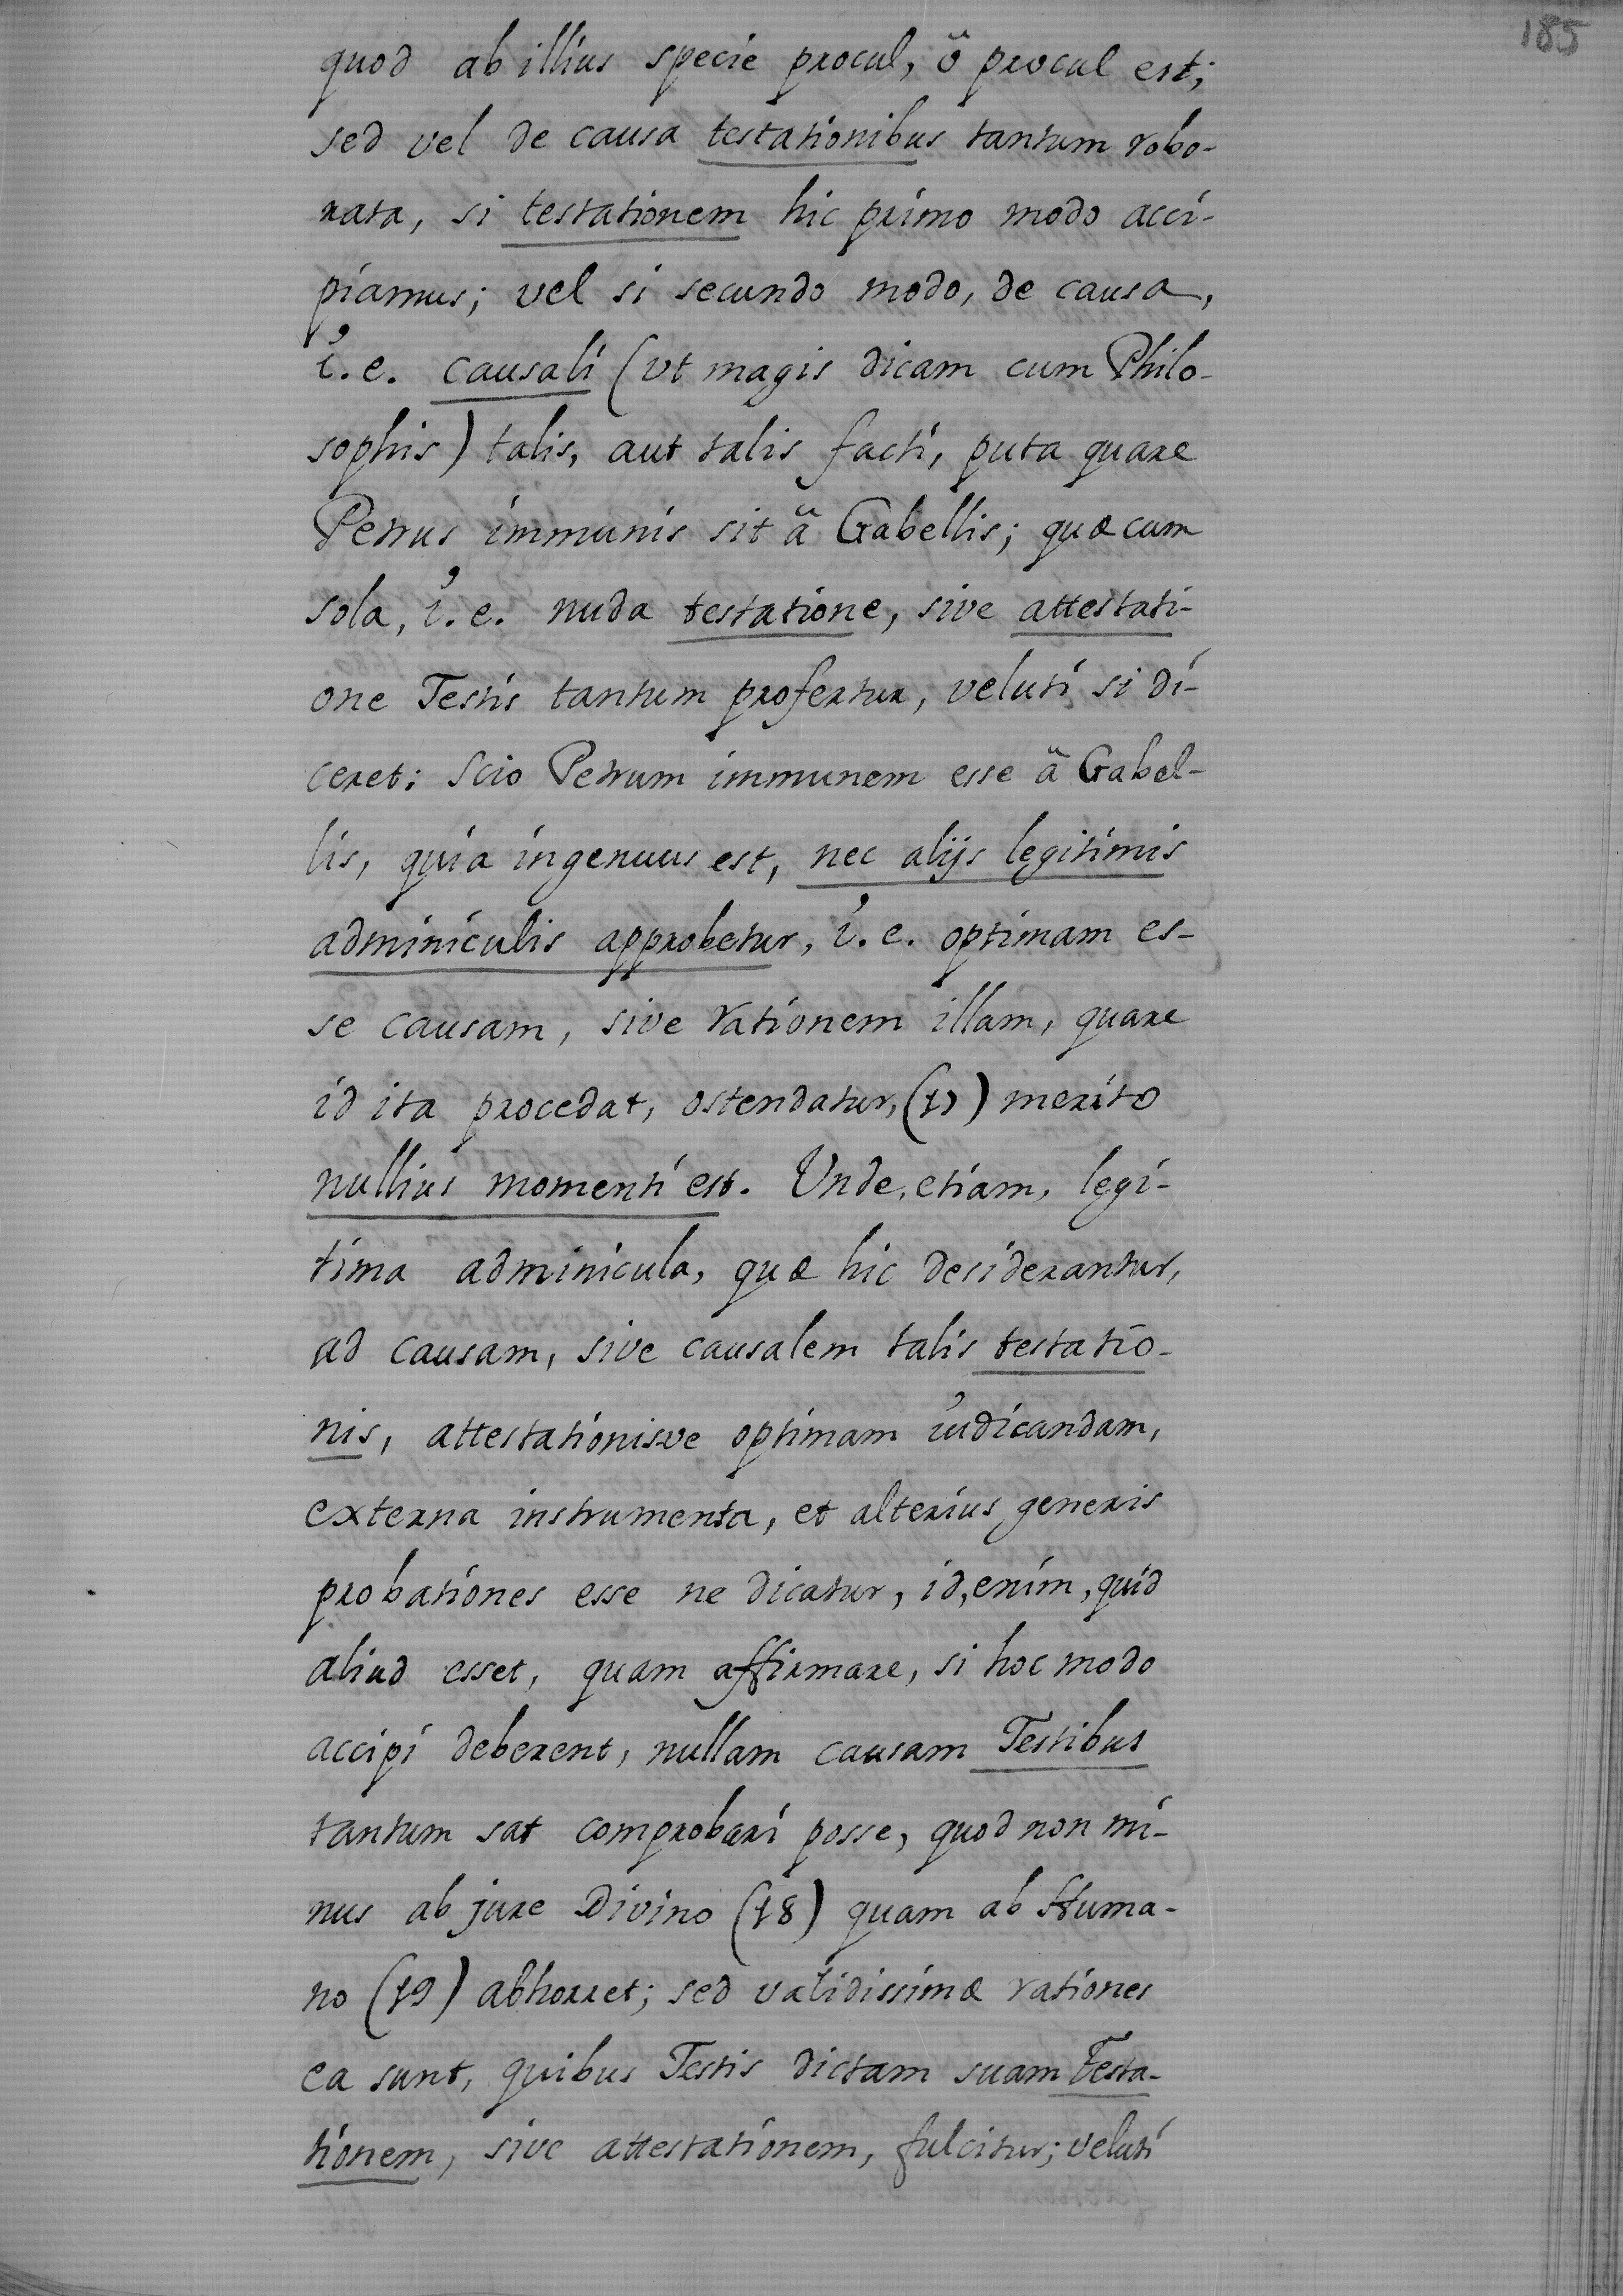 185
quod ab illius specie procul, ő procul est;
sed vel de causa testationibus tantum robo-
rata, si testationem hic primo modo acci-
piamus; vel si secundo modo, de causa,
i.e. causali (vt magis dicam cum Philo-
sophis) talis, aut talis facti, puta quare
Petrus immunis sit a̋ Gabellis; quæ cum
sola, i.e. nuda testatione, sive attestati-
one Testis tantum profertur, veluti si di-
ceret: Scio Petrum immunem esse a̋ Gabel-
lis, quia ingenuus est, nec alijs legitimis
adminiculis approbetur, i.e. optimam es-
se causam, sive rationem illam, quare
id ita procedat, ostendatur, (17) merito
nullius momenti est. Unde, etiam, legi-
tima adminicula, quæ hic desiderantur,
ad causam, sive causalem talis testatio-
nis, attestationisve optimam iudicandam,
externa instrumenta, et alterius generis
probationes esse ne dicatur, id, enim, quid
aliud esset, quam affirmare, si hoc modo
accipi deberent, nullam causam Testibus
tantum sat comprobari posse, quod non mi-
nus ab jure Divino (18) quam ab Huma-
no (19) abhorret; sed validissimæ rationes
ea sunt, quibus Testis dictam suam testa-
tionem, sive attestationem, fulcitur; veluti